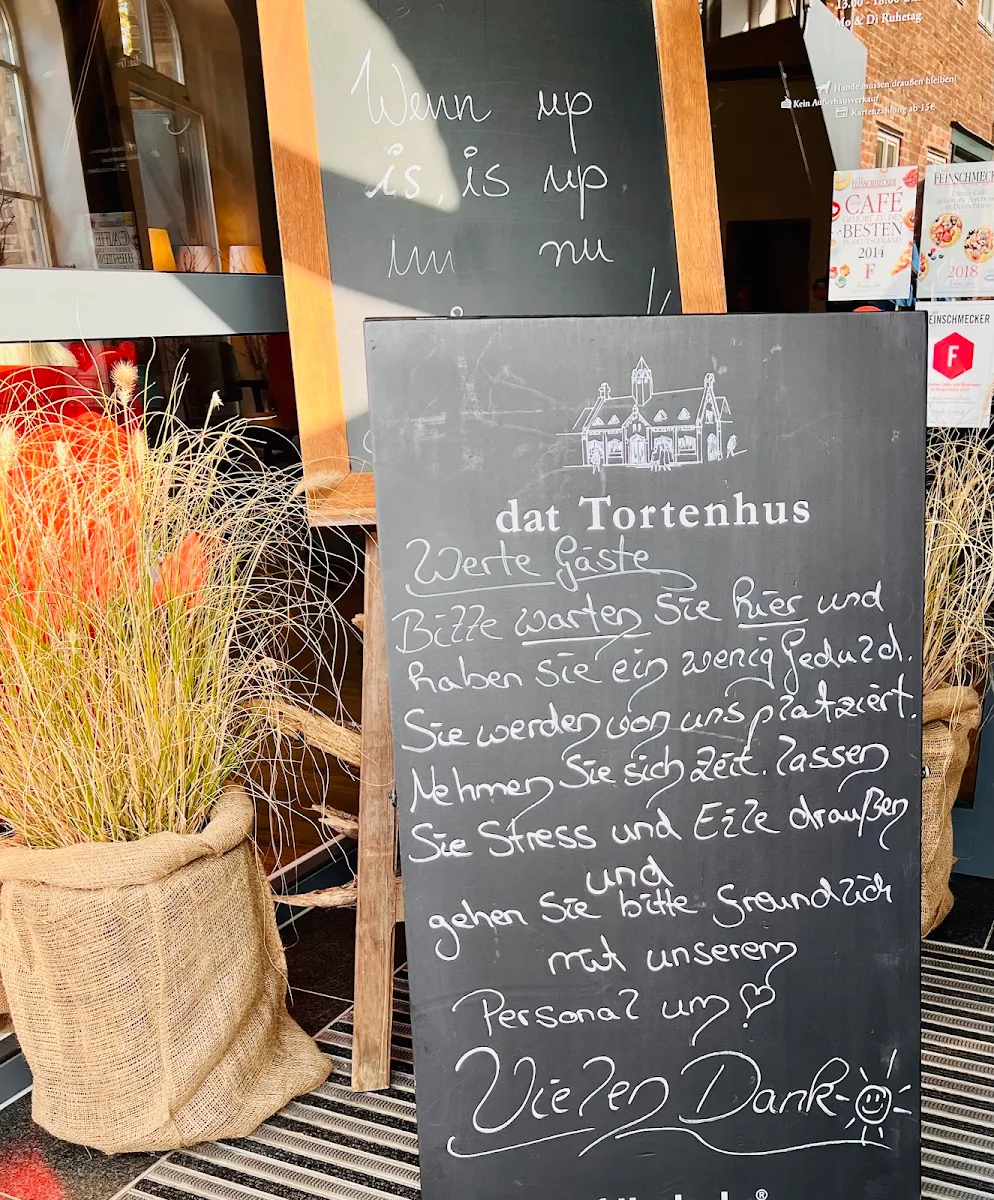 13.00 - 18.00
Mo & Di Ruhetag
Hunde müssen draußen bleiben!
Kein Außerhausverkauf
Kartenzahlung ab 15€
Wenn up
is, is up
un nu
FEINSCHMECKER
CAFÉ
GEHÖRT ZU DEN
BESTEN
IN DEUTSCHLAND
2014
F
FEINSCHMECK
2018
FEINSCHMECKER
F
dat Tortenhus
Werte Gäste
Bitte warten Sie hier und
haben Sie ein wenig Geduld.
Sie werden von uns platziert.
Nehmen Sie sich Zeit. lassen
Sie Stress und Eile draußen
und
gehen Sie bitte freundlich
mit unserem
Personal um
Vielen Dank